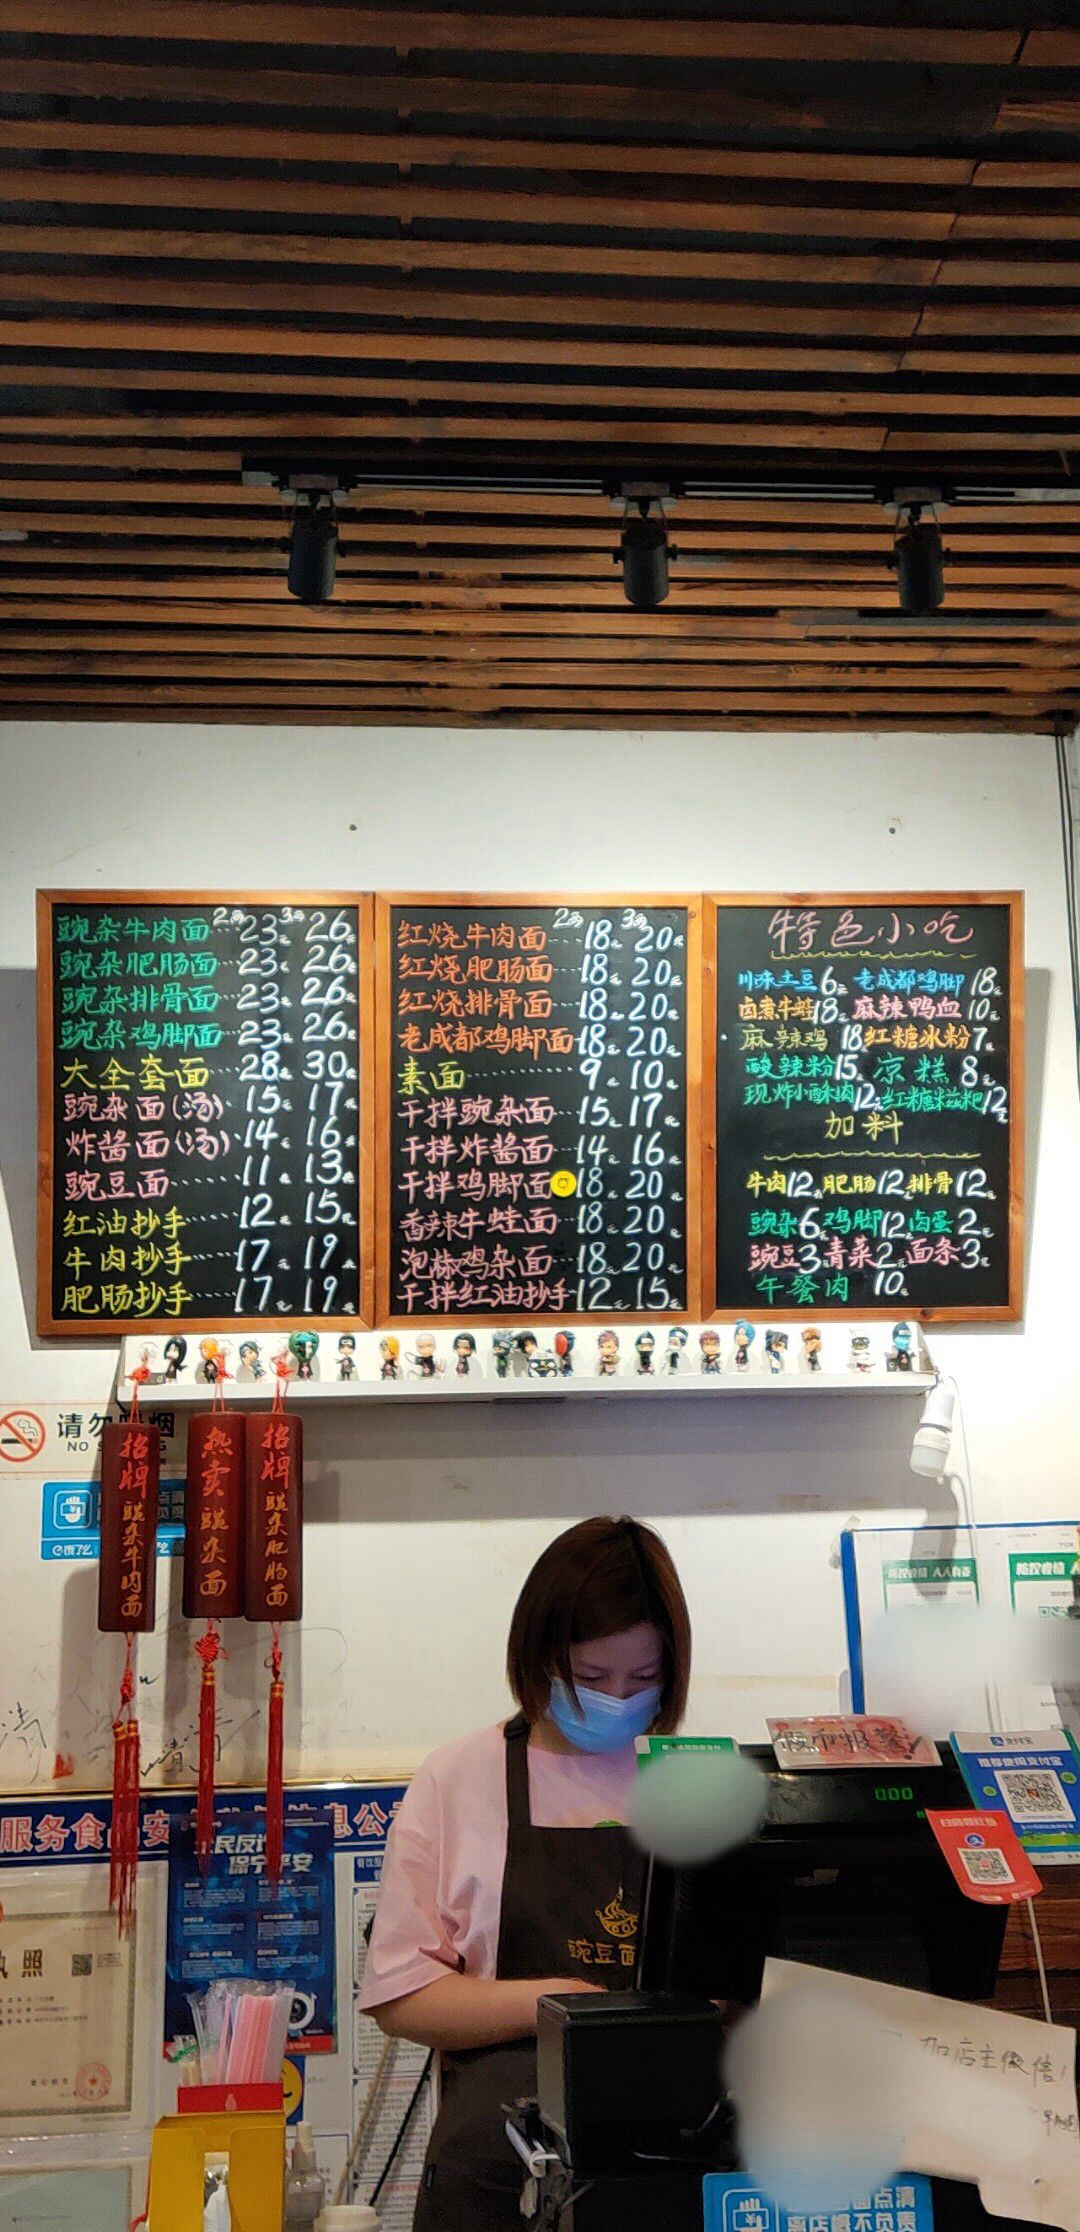 2两 3两
豌杂牛肉面 23元 26元
豌杂肥肠面 23元 26元
豌杂排骨面 23元 26元
豌杂鸡脚面 23元 26元
大全套面 28元 30元
豌杂面(汤) 15元 17元
炸酱面(汤) 14元 16元
豌豆面 11元 13元
红油抄手 12元 15元
牛肉抄手 17元 19元
肥肠抄手 17元 19元
2两 3两
红烧牛肉面 18元 20元
红烧肥肠面 18元 20元
红烧排骨面 18元 20元
老成都鸡脚面 18元 20元
素面 9元 10元
干拌豌杂面 15元 17元
干拌炸酱面 14元 16元
干拌鸡脚面 18元 20元
香辣牛蛙面 18元 20元
泡椒鸡杂面 18元 20元
干拌红油抄手 12元 15元
特色小吃
川味土豆 6元 老成都鸡脚 18元
卤煮牛蛙 18元 麻辣鸭血 10元
麻辣鸡 18 红糖冰粉 7元
酸辣粉 15元 凉糕 8元
现炸小酥肉 12元 红糖糍粑 12元
加料
牛肉 12元 肥肠 12元 排骨 12元
豌杂 6元 鸡脚 12元 卤蛋 2元
豌豆 3元 青菜 2元 面条 3元
午餐肉 10元
请勿 烟
NO
招牌 豌杂牛肉面
热卖 豌杂面
招牌 豌杂肥肠面
饿了么
防控疫情 人人有责
防控疫情
假币报警
0.00
支付宝
推荐使用支付宝
服务食品安 息公
民反诈
保宁平安
执照
豌豆面
加店主微信
面点清
离店概不负责